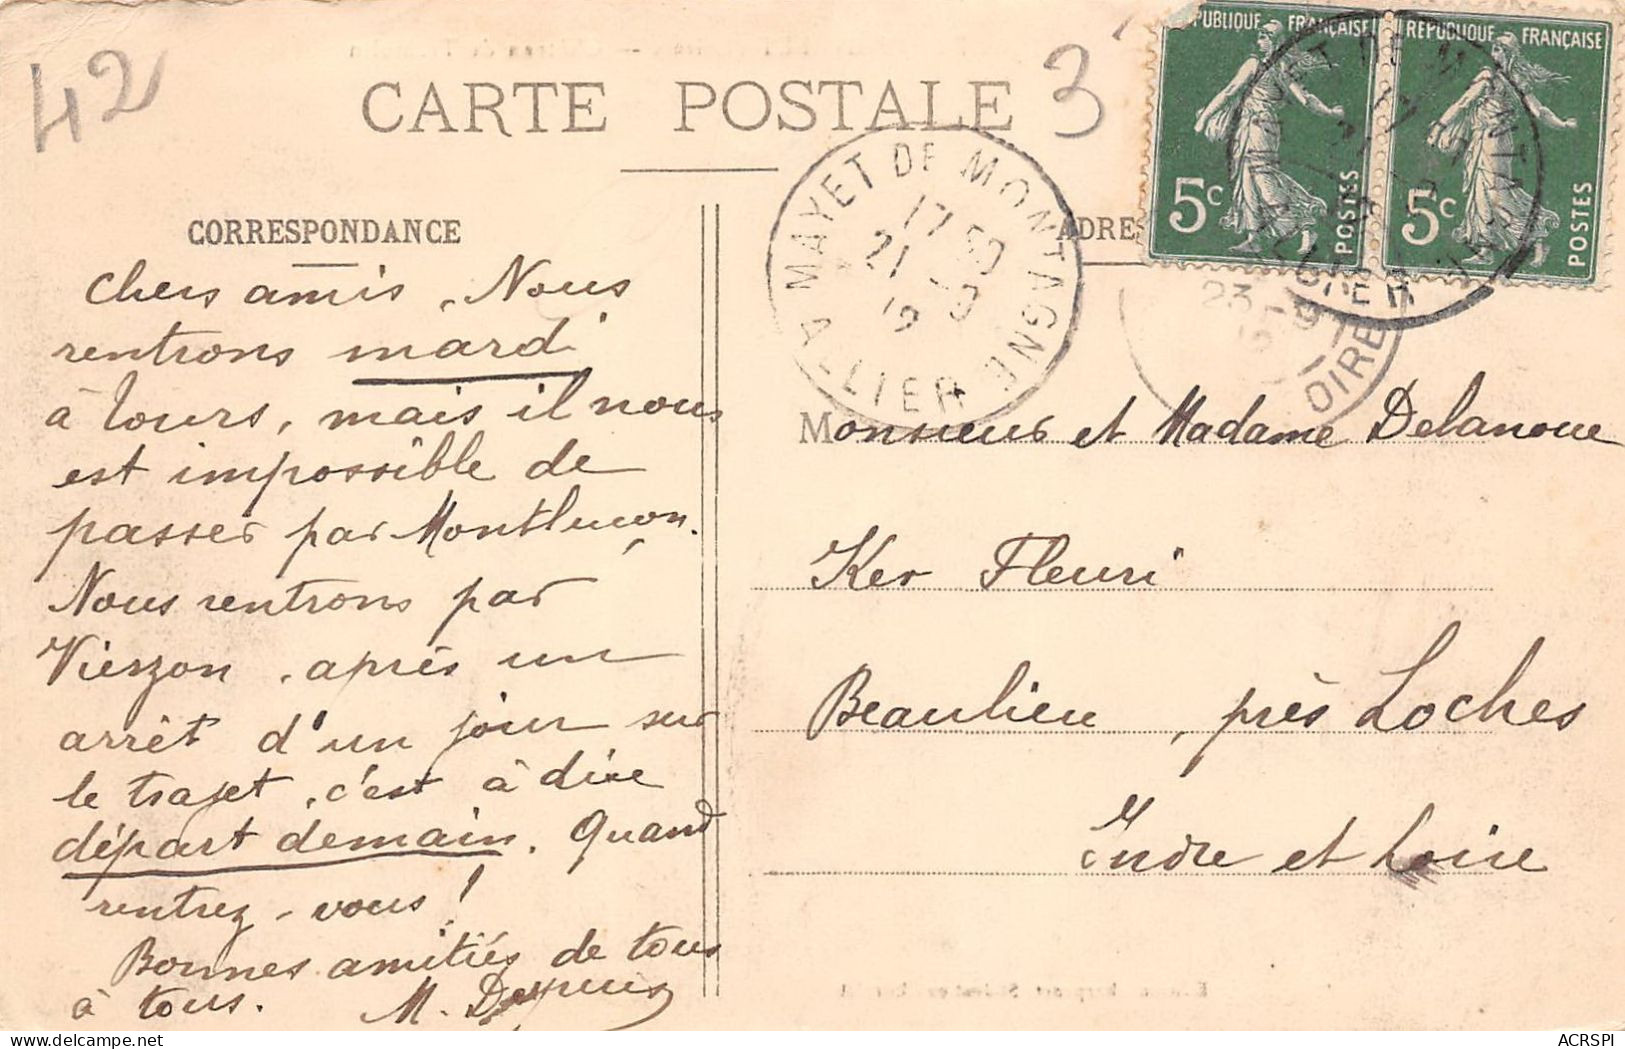 42
CARTE POSTALE
3
RÉPUBLIQUE FRANÇAISE
5c POSTES
RÉPUBLIQUE FRANÇAISE
5c POSTES
MAYET DE MONTAGNE
17 50
21 - 9
12
ALLIER
23 - 9
LOIRE
CORRESPONDANCE
chers amis. Nous
rentrons mardi
à Tours, mais il nous
est impossible de
passer par Montluçon.
Nous rentrons par
Vierzon, après un
arrêt d'un jour sur
le trajet, c'est à dire
départ demain. Quand
rentrez-vous!
Bonnes amitiés de tous
à tous. M.
ADRES
Monsieur et Madame Delanoue
Ker Fleuri
Beaulieu, près Loches
Indre et Loire
ACRSPI